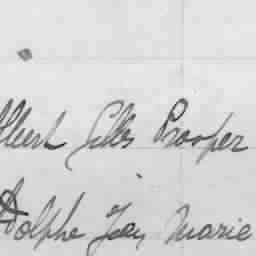 Albert Gilles Prosper
Adolphe Jean Marie